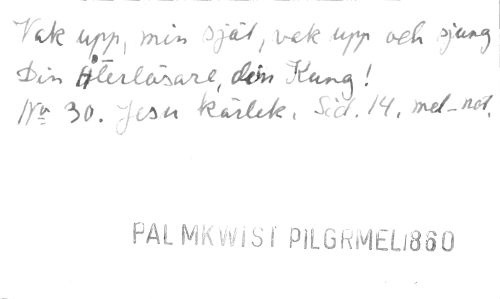 Vak upp, min själ, vak upp och sjung
Din Återlösare, din Kung!
No 30. Jesu kärlek. Sid. 14. mel-not.
PALMKWIST PILGRMEL1860